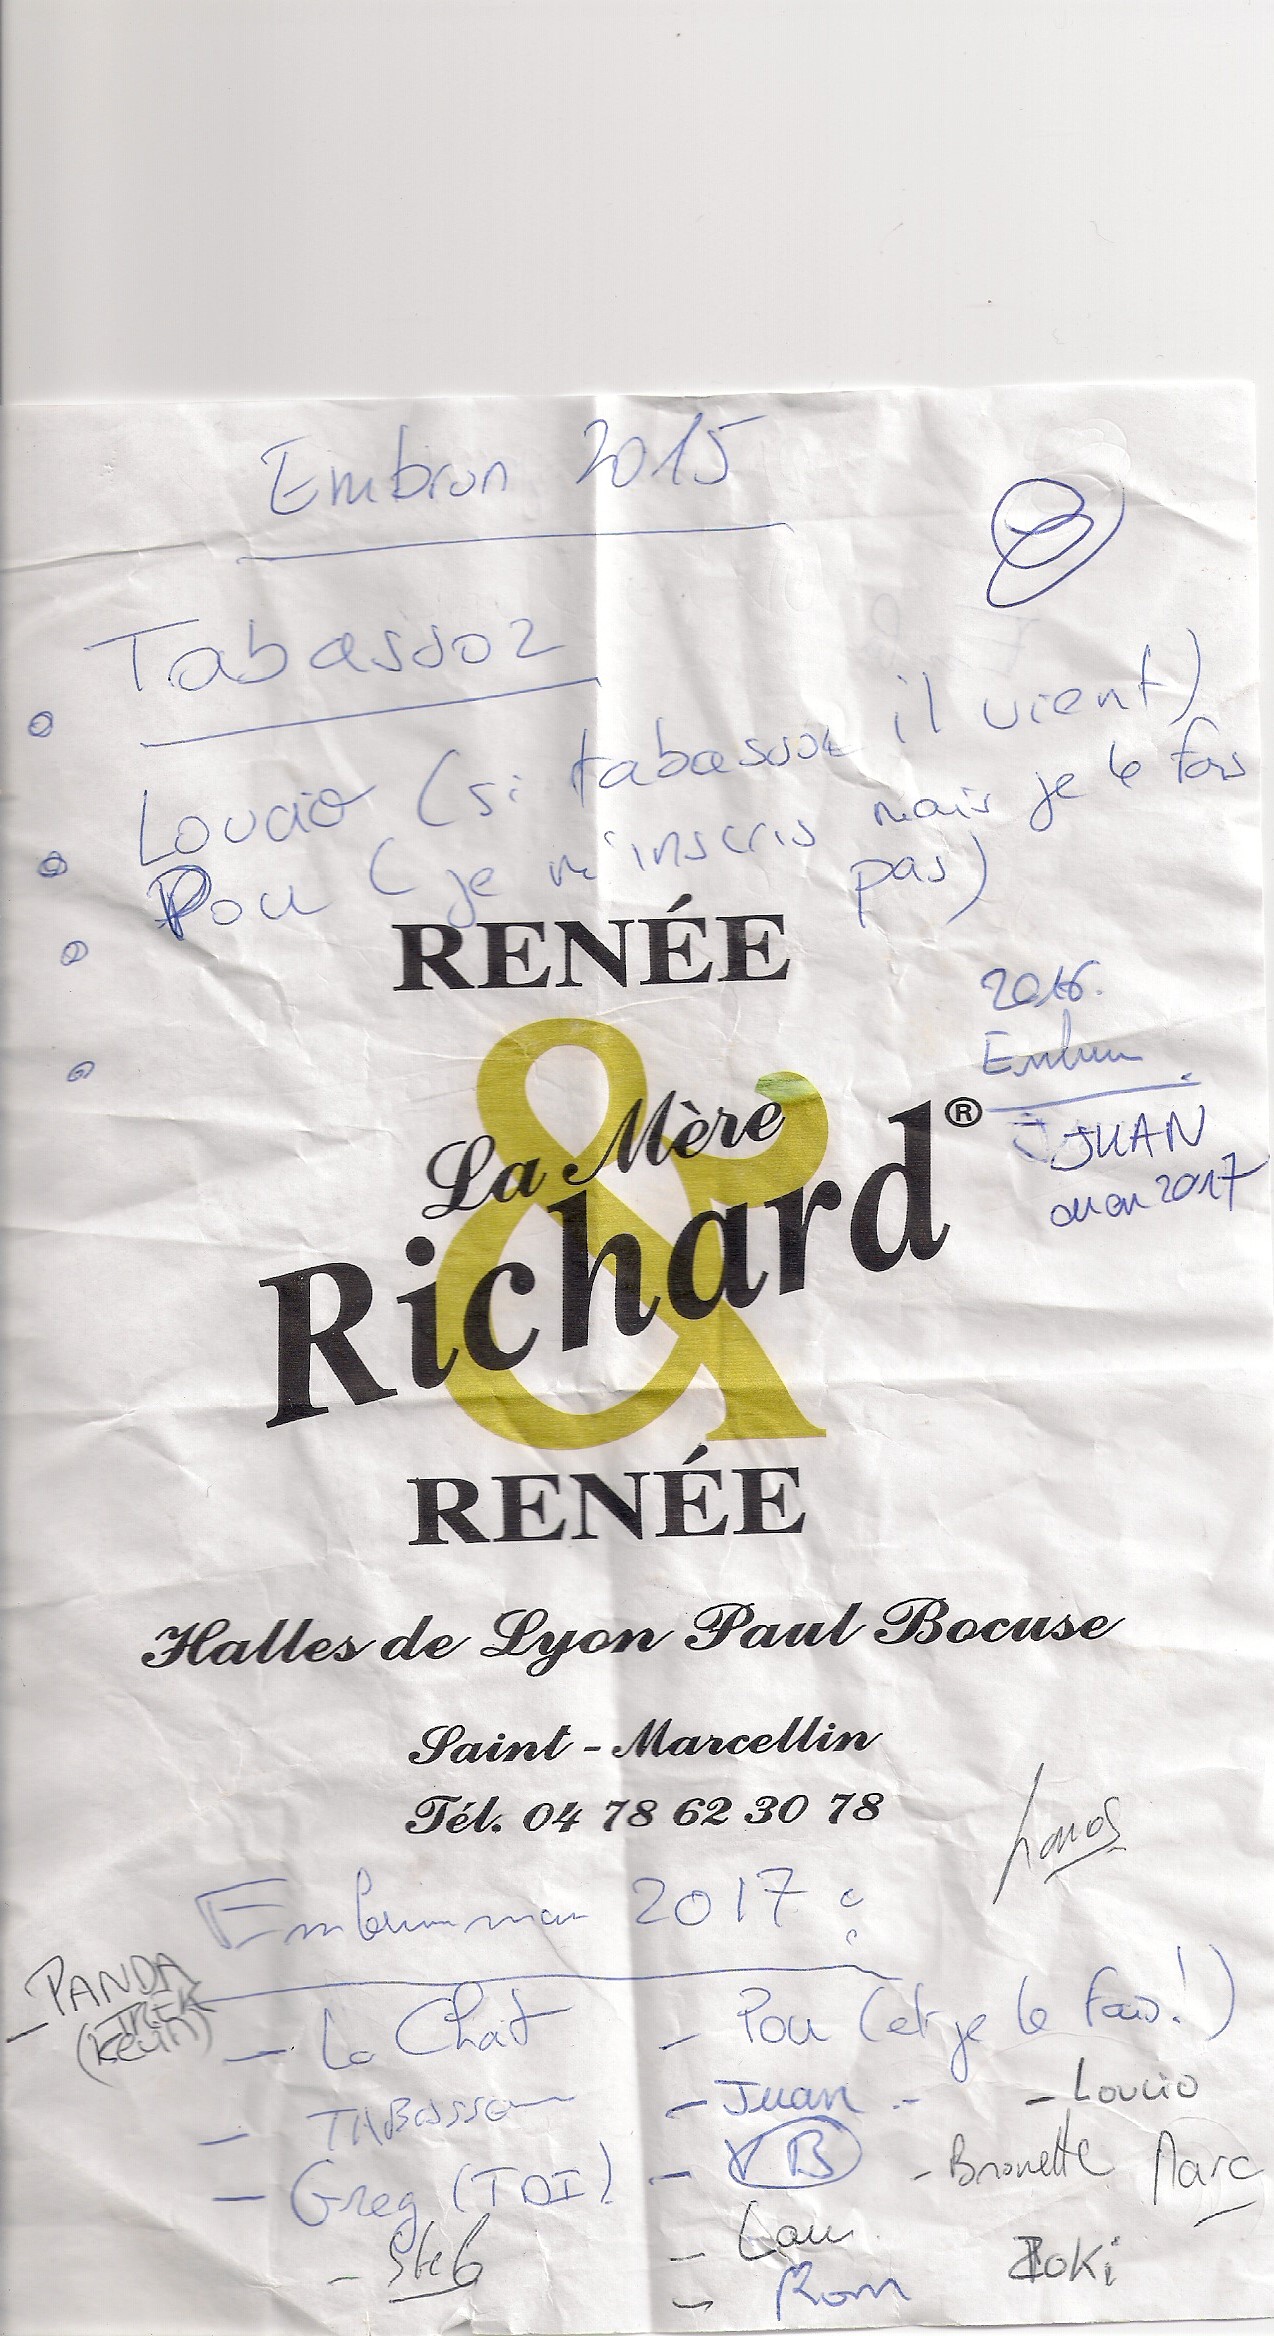 Embrun 2015
Tabassoz
Loucio (si tabassoz il vient)
Pou (je m'inscris mais je le fais pas)
RENÉE
2016.
Embrun
JUAN
ou en 2017
&
La Mère
Richard®
RENÉE
Halles de Lyon Paul Bocuse
Saint - Marcellin
Tél. 04 78 62 30 78
Embrunman 2017 :
- PANDA
TREK
(Kevin)
- Le Chat
- Pou (et je le fais!)
- Juan -
- Loucio
- Greg (TDI)
- B
- Brouette
Marc
- Steb
- Lau
- Rom
Loki